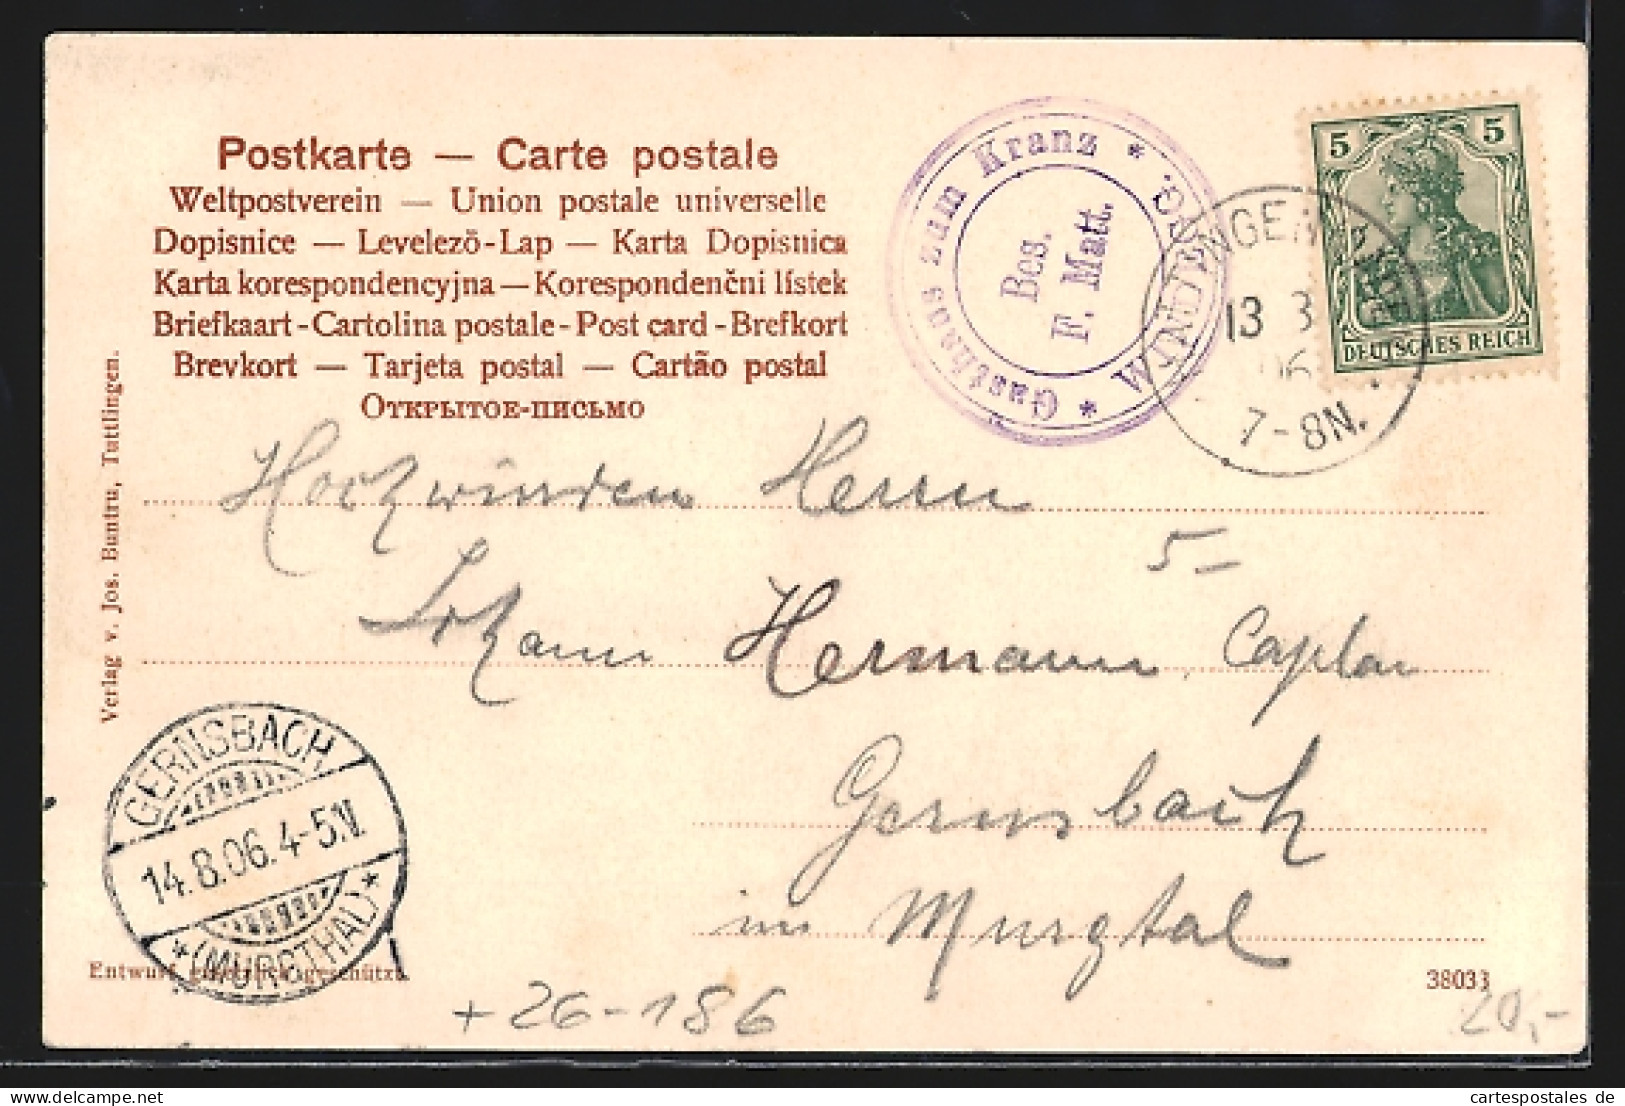 Postkarte — Carte postale
Weltpostverein — Union postale universelle
Dopisnice — Levelező-Lap — Karta Dopisnica
Karta korespondencyjna — Korespondenčni lístek
Briefkaart - Cartolina postale - Post card - Brefkort
Brevkort — Tarjeta postal — Cartão postal
Открытое-письмо
Gasthaus zum Kranz *
Bes.
F. Matt.
5 5
DEUTSCHES REICH
13
7-8N.
Verlag v. Jos. Buntru, Tuttlingen.
Hochwürden Herrn
5-
Hermann Caplan
Gernsbach
im Murgtal
GERNSBACH
14.8.06.4-5.V.
*(MURGTHAL)*
Entwurf gesetzlich geschützt.
38033
+26-186
20,-
cartespostales de